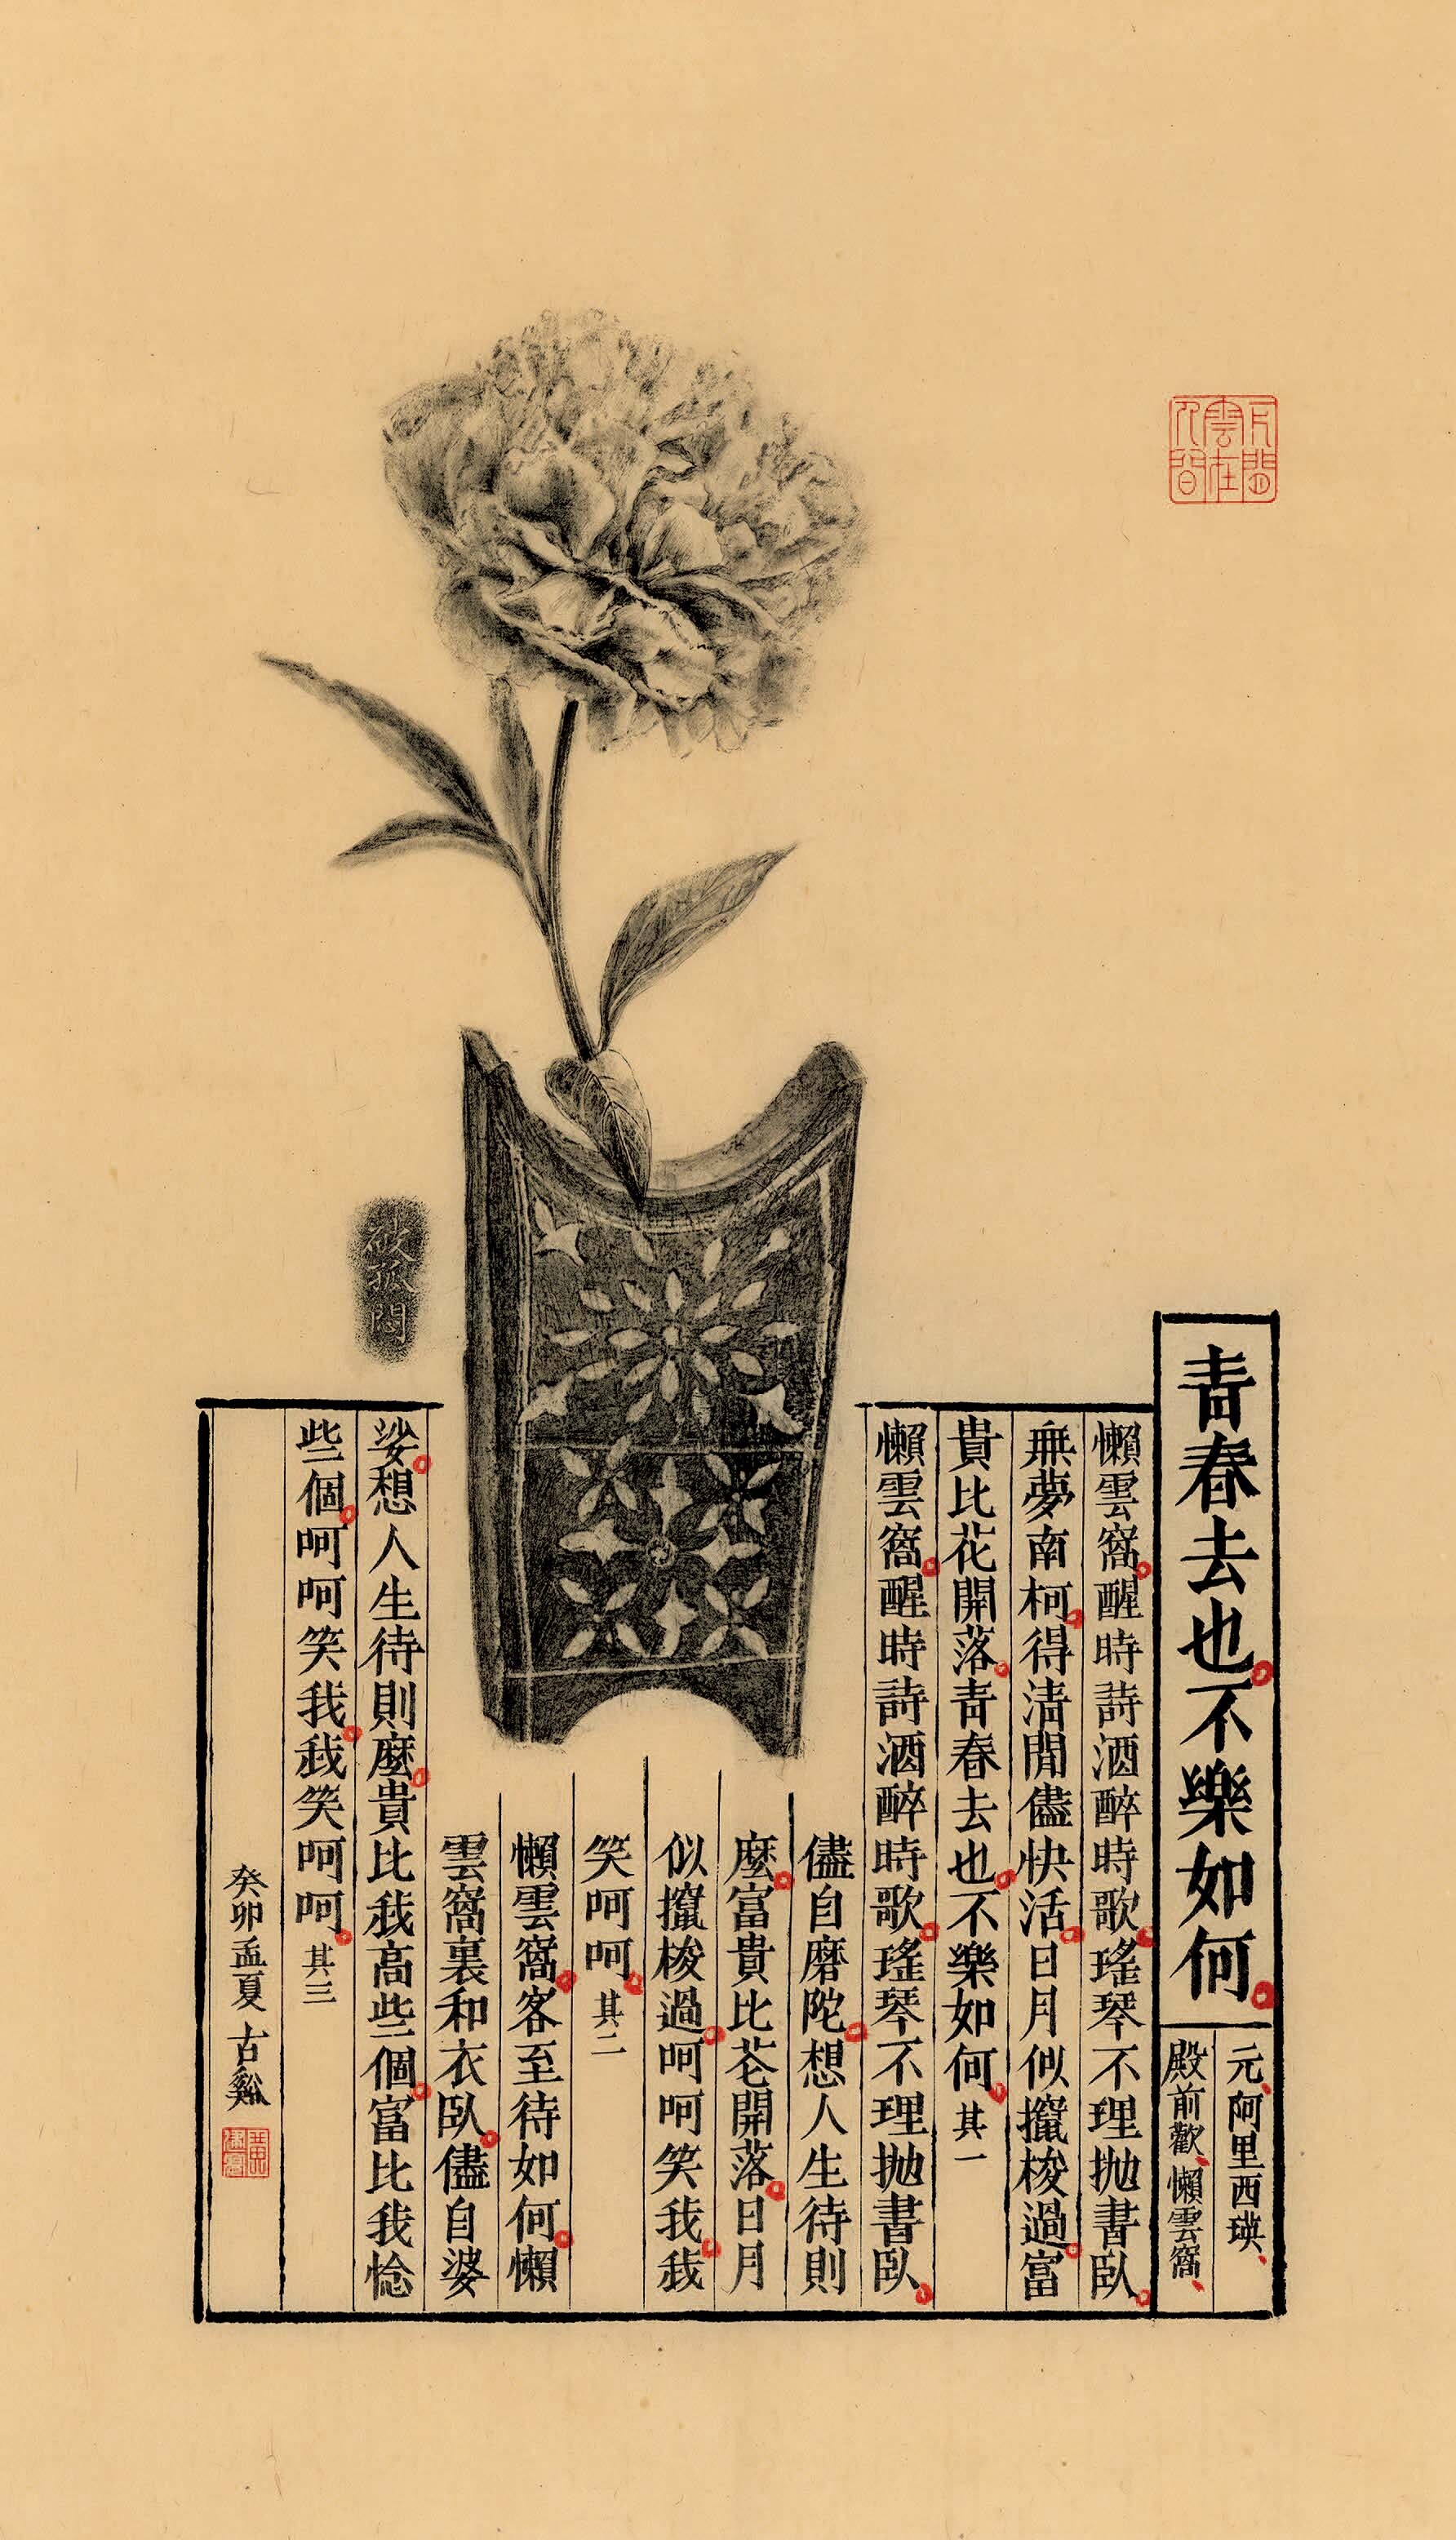 青春去也。不樂如何。
元、阿里西瑛、
殿前歡、懶雲窩、
懶雲窩。醒時詩酒醉時歌。瑤琴不理抛書臥。
無夢南柯。得清閒儘快活。日月似攛梭過。富
貴比花開落。青春去也。不樂如何。其一
懶雲窩。醒時詩酒醉時歌。瑤琴不理抛書臥。
儘自磨陀。想人生待則
麼。富貴比花開落。日月
似攛梭過。呵呵笑我。我
笑呵呵。其二
懶雲窩。客至待如何。懶
雲窩裏和衣臥。儘自婆
娑。想人生待則麼。貴比我高些個。富比我惗
些個。呵呵笑我。我笑呵呵。其三
癸卯孟夏 古谿